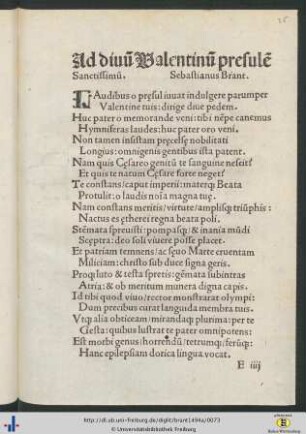 Ad diuū Valentinū presulē
Sanctissimū. Sebastianus Brant.
LAudibus o pręsul iuuat indulgere parumper
Valentine tuis: dirige diue pedem.
Huc pater o memorande veni: tibi nēpe canemus
Hymniferas laudes: huc pater oro veni.
Non tamen insistam pręcelsę nobilitati
Longius: omnigenis gentibus ista patent.
Nam quis Cęsareo genitū te sanguine nescit?
Et quis te natum Cęsare forte neget?
Te constans/caput imperii: materq; Beata
Protulit: o laudis noīa magna tuę.
Nam constans meritis/virtute/amplisq; triūphis:
Nactus es ętherei regna beata poli.
Stēmata spreuisti: pompasq; & inania mūdi
Scęptra: deo soli viuere posse placet.
Et patriam temnens/ac sęuo Marte cruentam
Miliciam: christo sub duce signa geris.
Proq; luto & testa spretis: gēmata subintras
Atria: & ob meritum munera digna capis.
Ad tibi quod viuo/rector monstrarat olympi:
Dum precibus curat languida membra tuis.
Vtq; alia obticeam/mirandaq; plurima: per te
Gesta: quibus lustrat te pater omnipotens:
Est morbi genus: horrendū/tetrumq;/ferūq;:
Hanc epilepsiam dotica lingua vocat.
E iiij
http://dl.ub.uni-freiburg.de/diglit/brant1494a/0073
© Universitätsbibliothek Freiburg